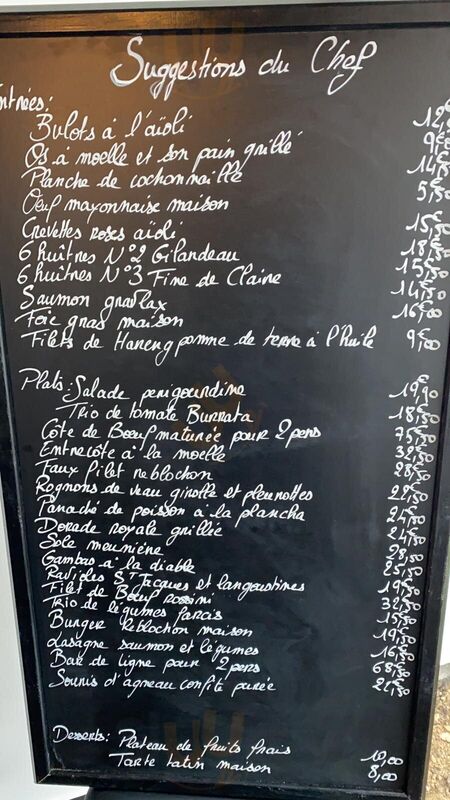 Suggestions du Chef
Entrées:
Bulots à l'aïoli 12,
Os à moelle et son pain grillé 9€
Planche de cochonnaille 14,50
Oeuf mayonnaise maison 5,50
Crevettes roses aïoli 15,50
6 huîtres N°2 Gilardeau 18,50
6 huîtres N°3 Fine de Claire 15,50
Saumon gravlax 14,50
Foie gras maison 16,00
Filets de Hareng pomme de terre à l'huile 9,00
Plats: Salade perigourdine 19,90
Trio de tomate Burrata 18,50
Côte de Boeuf maturée pour 2 pers 75,50
Entrecôte à la moelle 32,50
Faux filet reblochon 28,50
Rognons de veau girolle et pleurottes 22,50
Panaché de poisson à la plancha 24,50
Dorade royale grillée 24,50
Sole meunière 28,50
Gambas à la diable 25,50
Ravioles St Jacques et langoustines 19,50
Filet de Boeuf rossini 32,50
Trio de légumes farcis 15,50
Burger reblochon maison 19,50
Lasagne saumon et légumes 16,50
Bar de ligne pour 2 pers 68,50
Souris d'agneau confite purée
Desserts: Plateau de fruits frais 10,00
Tarte tatin maison 8,00